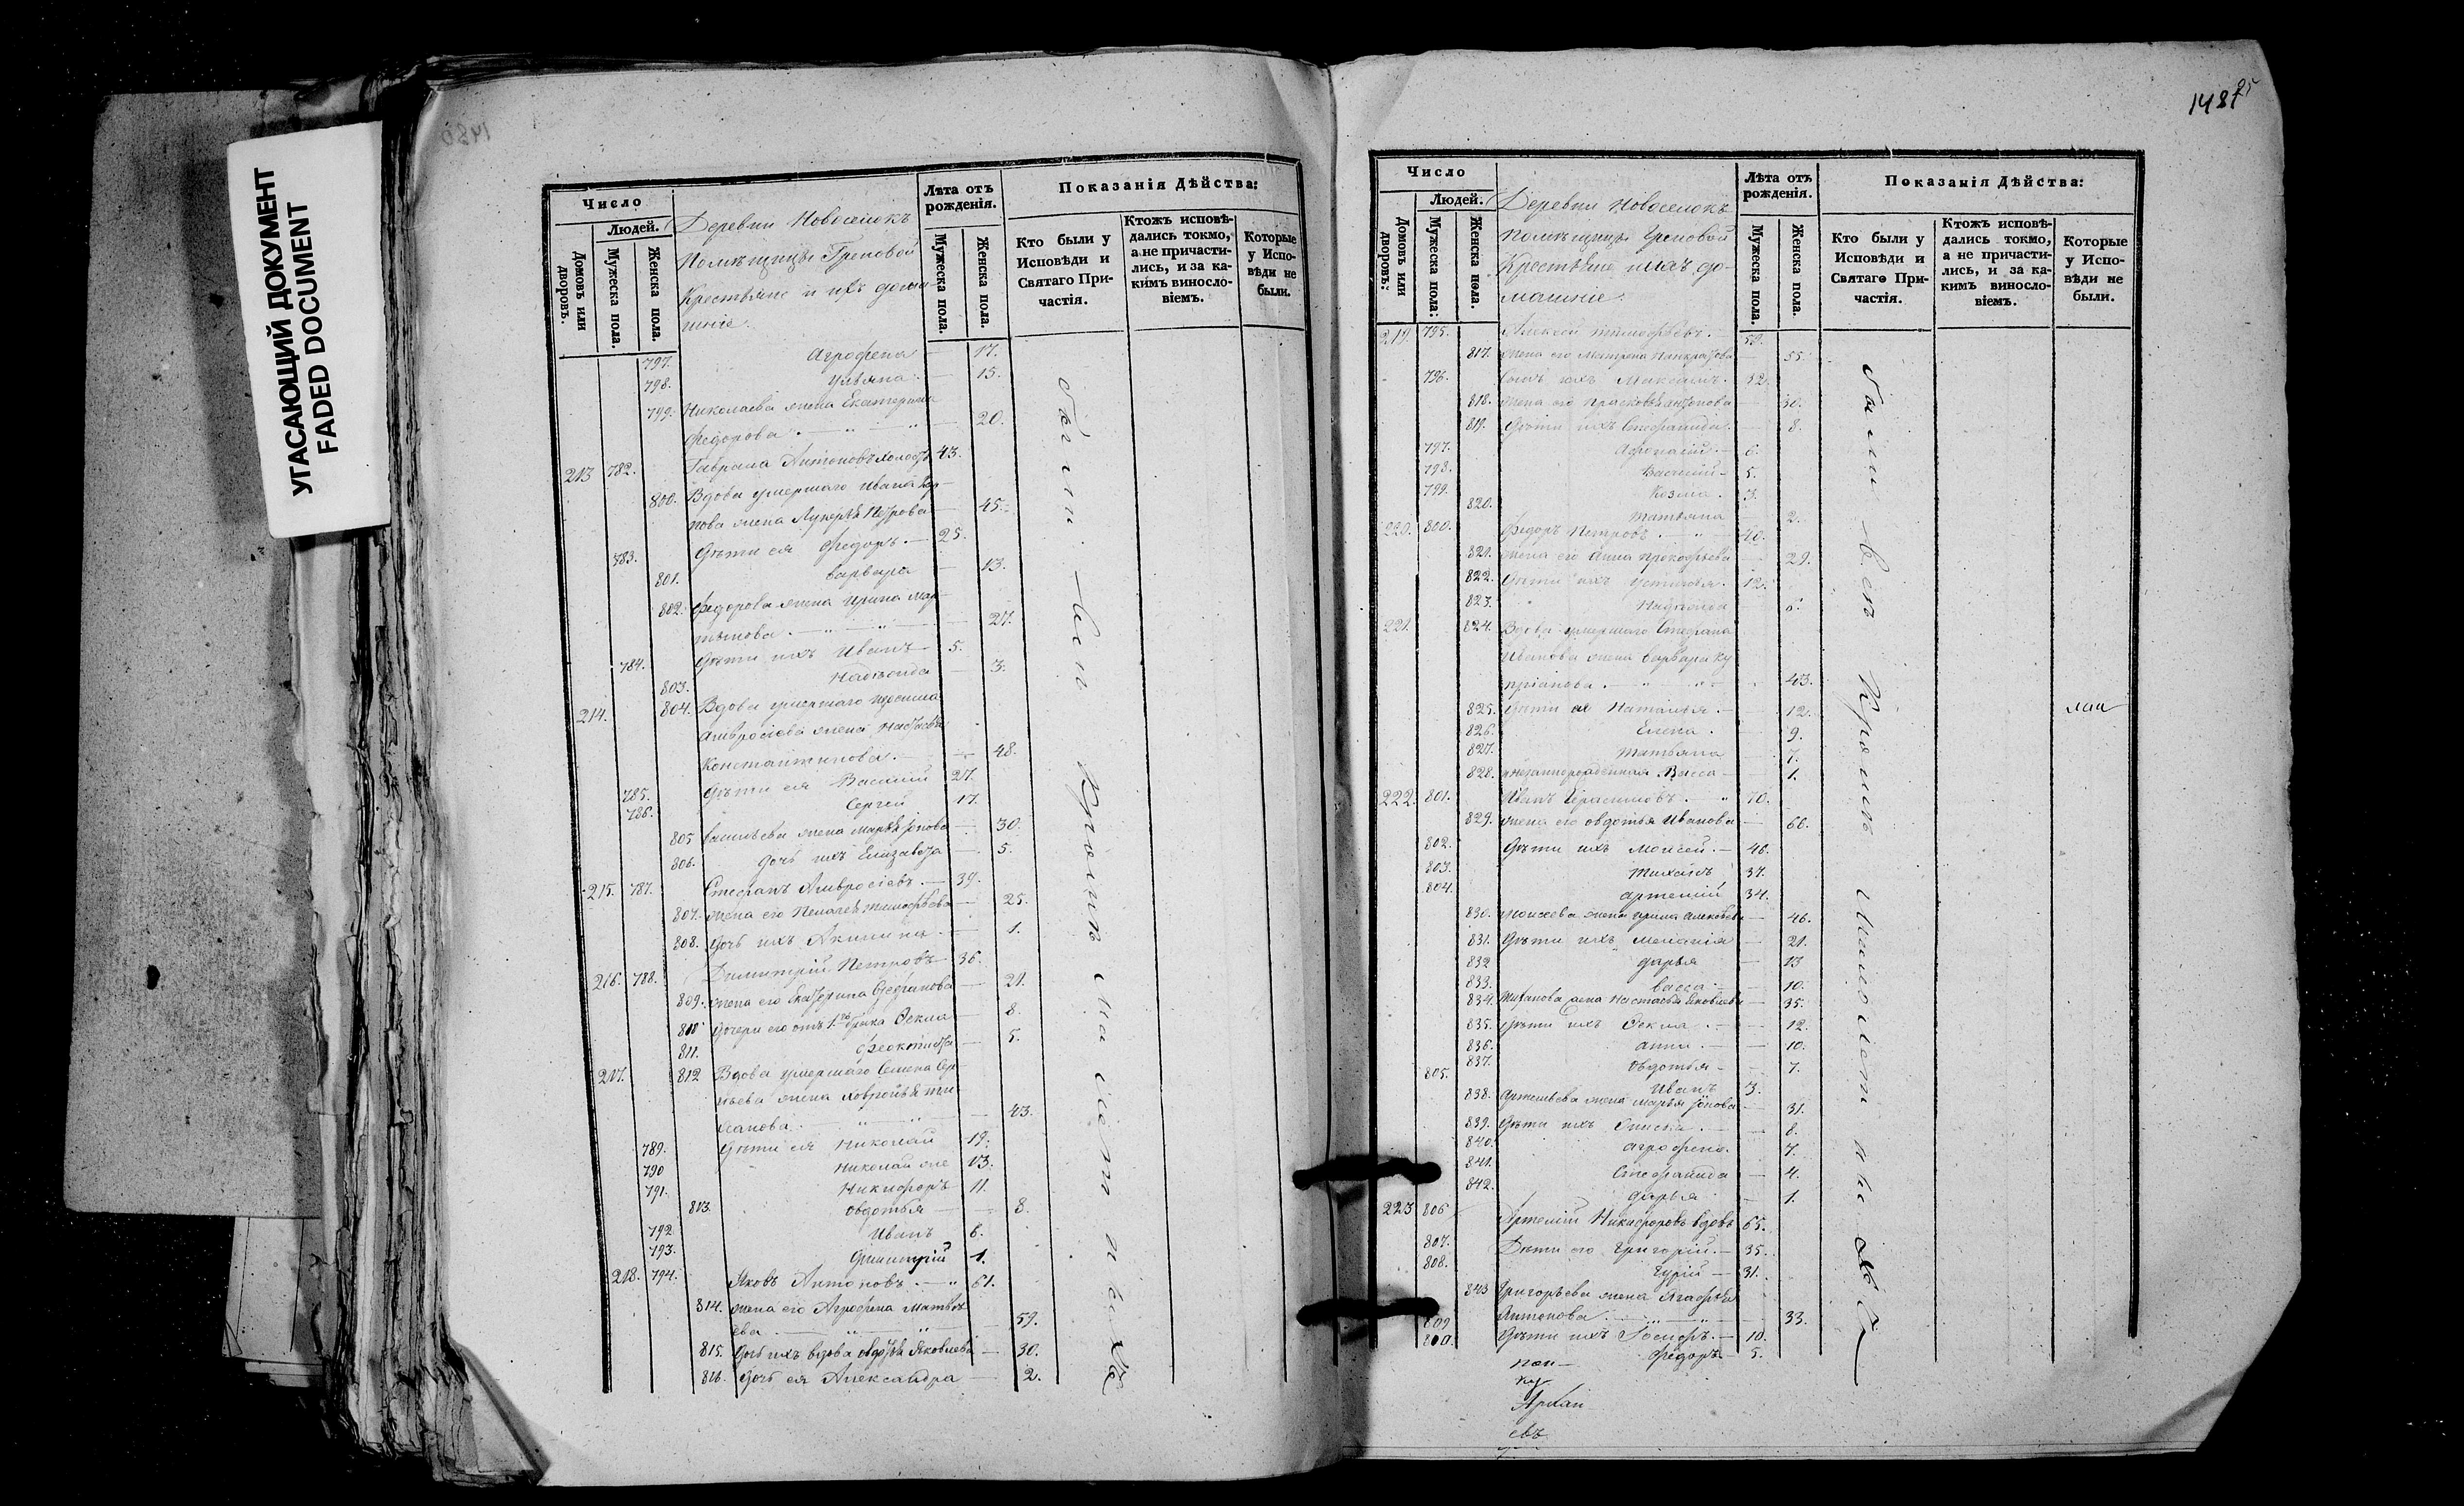 УГАСАЮЩИЙ ДОКУМЕНТ
FADED DOCUMENT
1480
Число
Людей.
Домовъ или дворовъ.
Мужеска пола.
Женска пола.
Деревни Новоселокъ
Помѣщицы
Крестьяне и ихъ дома-
шніе.
Лѣта отъ рожденія.
Мужеска пола.
Женска пола.
Показанія Дѣйства:
Кто были у Исповѣди и Святаго При-частія.
Ктожъ исповѣ-дались токмо, а не причасти-лись, и за ка-кимъ винос ло-віемъ.
Которые у Испо-вѣди не были.
797. Агрофена — 17.
798. Ульяна — 15.
799. Николаева жена Екатерина
Федорова. — 20.
213 782. Гаврила Антоновъ холостъ 43.
800. Вдова умершаго Ивана
жена Петрова 45.
783. Дѣти ея Федоръ. — 25.
801. Варвара — 13.
802. Федорова жена Ирина Мар-
тинова. — 27.
784. Дѣти ихъ Иванъ 5.
803. Надежда — 3.
214. 804. Вдова умершаго
Амвросіева жена Настасья
Константинова. — 48.
785. Дѣти ея Василій 27.
786. Сергей 17.
805 Васильева жена Марья Іонова — 30.
806. Дочь ихъ Елизавета — 5.
215. 787. Стефанъ Амвросіевъ. — 39.
807. жена его Пелагея Тимофѣева — 25.
808. Дочь ихъ Акилина — 1.
216. 788. Димитрій Петровъ 36.
809. жена его Екатерина Стефанова — 21.
810 Дочери его отъ 1го брака Фекла — 8.
811. Феоктиста — 5.
217. 812 Вдова умершаго Семена Сер-
гѣева жена Хавронья
— 43.
789. Дѣти ея Николай 19.
790 Николай же 13.
791. Никифоръ 11.
813. Овдотья — 8.
792 Иванъ 6.
793. Димитрій 1.
218. 794. Яковъ Антоновъ. — 61.
814. жена его Агрофена Матвѣ-
ева. — 59.
815. Дочь ихъ вдова Овдотья Яковлева — 30.
816. Дочь ея Александра — 2.
были всѣ кромѣ малолѣтныхъ
1481
Число
Людей.
Домовъ или дворовъ:
Мужеска пола:
Женска пола.
Деревни Новоселокъ
помѣщицы
Крестьяне и ихъ до-
машніе.
Лѣта отъ рожденія.
Мужеска пола.
Женска пола.
Показанія Дѣйства:
Кто были у Исповѣди и Святаго При-частія.
Ктожъ исповѣ-дались токмо, а не причасти-лись, и за ка-кимъ винос ло-віемъ.
Которые у Испо-вѣди не были.
219. 795. Алексѣй Тимофѣевъ. — 59.
817. жена его Матрена Панкратова — 55.
796. Сынъ ихъ Максимъ. 32.
818. жена его Прасковья Антонова — 30.
819. Дѣти ихъ Стефанида. — 8.
797. Афонасій — 6.
798. Василій — 5.
799. Козма. 3.
820. Татьяна — 2.
220. 800. Федоръ Петровъ. — 40.
821. жена его Анна Прокофьева — 29.
822. Дѣти ихъ 12.
823. Надежда 6.
221. 824. Вдова умершаго Стефана
Иванова жена Варвара Ку-
пріянова. — 43.
825. Дѣти ея Наталья. — 12.
826. Елена. 9.
827. Татьяна 7.
828. незаконнорожденная Васса — 1.
222. 801. Иванъ Герасимовъ. — 70.
829. жена его Овдотья Иванова — 66.
802. Дѣти ихъ Моисей. — 46.
803. Тихонъ 37.
804. Артемій 34.
830. Моисеева жена Ирина Алексѣева — 46.
831. Дѣти ихъ Меланія — 21.
832 Дарья — 13
833. Васса — 10.
834. Тихонова жена Настасья Яковлева — 35.
835. Дѣти ихъ Фекла. — 12.
836. Анна. — 10.
837. Овдотья — 7.
805. Иванъ 3.
838. Артемьева жена Марья Іонова — 31.
839. Дѣти ихъ — 8.
840. Агрофена. 7.
841. Стефанида — 4.
842. Дарья — 1.
223 806 Артемій Никифоровъ вдовъ 65.
807. Дѣти его Григорій. — 35.
808. Гурій — 31.
843 Григорьева жена Агафья
Антонова. — 33.
809 Дѣти ихъ Іосифъ. — 10.
810. Федоръ — 5.
были всѣ кромѣ